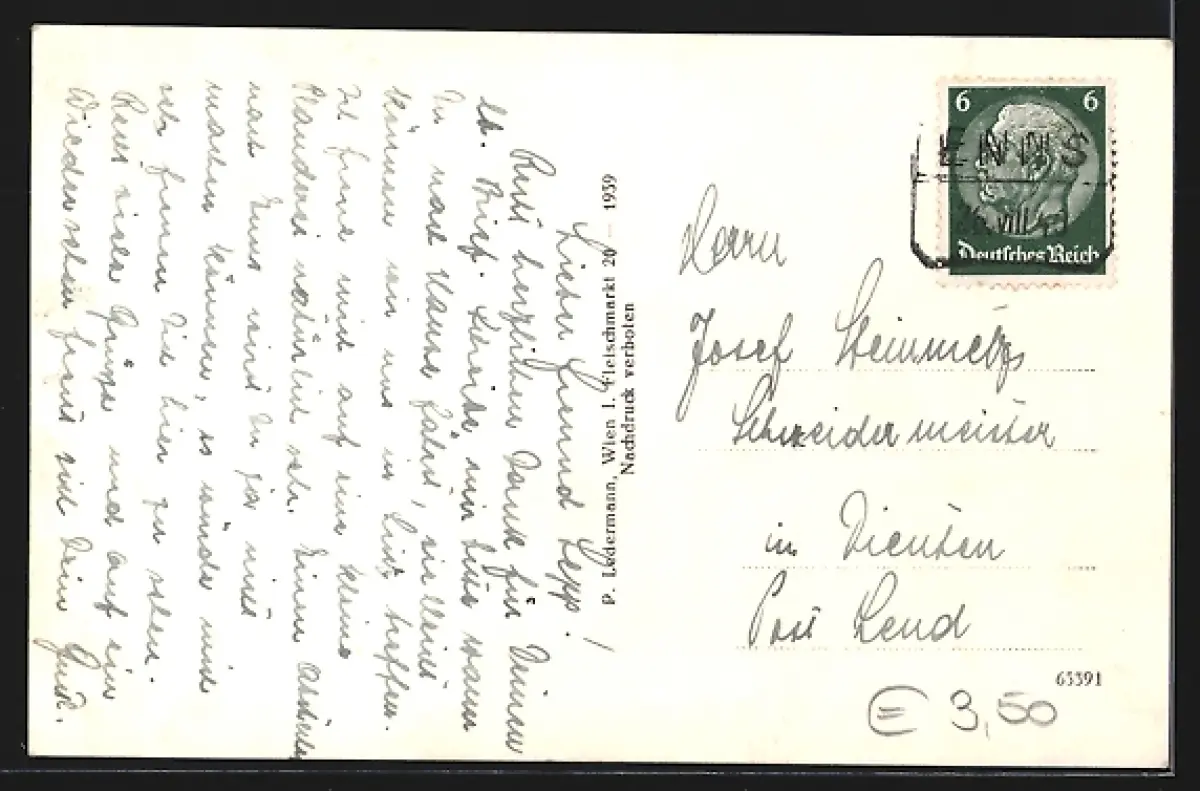 Lieber Freund Sepp!
Recht herzlichen Dank für Deinen
lb. Brief. Schreibe mir bitte wann
Du nach Hause fährst, vielleicht
können wir uns in Linz treffen.
Ich freue mich auf eine kleine
Plauderei natürlich sehr. Einen Abstecher
nach Enns wirst Du ja nicht
machen können, es würde mich
sehr freuen Dich hier zu sehen.
Recht viele Grüße und auf ein
Wiedersehen freut sich Dein
P. Ledermann, Wien I. Fleischmarkt 20 — 1939
Nachdruck verboten
6 6
ENNS
Deutsches Reich
Herrn
Josef Steinmetz
Schneidermeister
in Dienten
Post Lend
63391
E 3,50